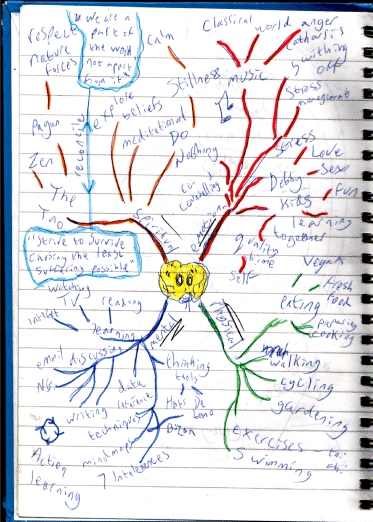 "we are a
part of
the world
not apart
from it"
respect
nature
forces
calm
Classical
world
anger
catharsis
switching
off
Stillness
music
stress
management
explore
beliefs
meditational
Do
Nothing
Pagan
Zen
The
Tao
reconcile
spiritual
emotional
co-
controlling
stress
Love
Sex
Debby
Fun
Kids
learning
together
quality
time
Self
"strive to survive
causing the least
suffering possible"
watching
TV
reading
internet
learning
mental
email
discussing
NGs
writing
data
techniques
mindmaps
7 Intelligences
thinking
tools
Hats De
bono
Buzan
Action
learning
physical
Vegan
fresh
food
eating
preparing
cooking
walking
cycling
gardening
exercises - tai
chi
Swimming